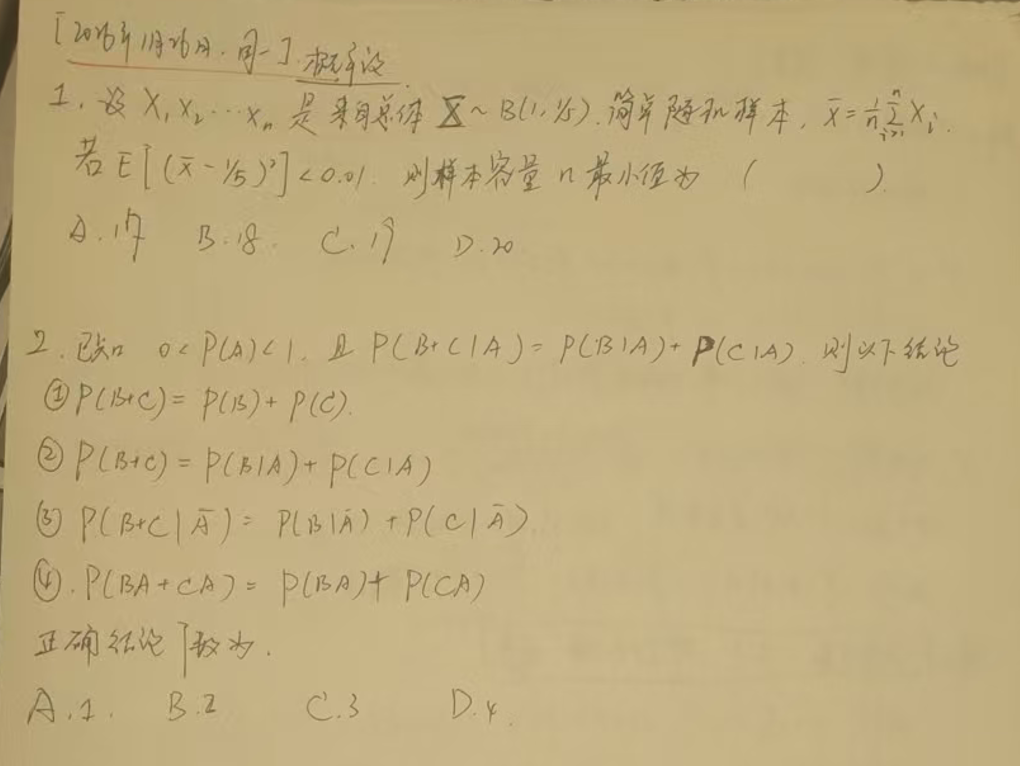 [2026年1月26日.周一].概率论
1.设X₁X₂…Xₙ是来自总体X~B(1,1/5).简单随机样本,x̄=1/n∑ⁿᵢ₌₁Xᵢ.
若E[(x̄-1/5)²]<0.01.则样本容量n最小值为( ).
A.17 B.18. C.19 D.20
2.已知 0<P(A)<1.且P(B+C|A)=P(B|A)+P(C|A).则以下结论
①P(B+C)=P(B)+P(C).
②P(B+C)=P(B|A)+P(C|A)
③P(B+C|Ā)=P(B|Ā)+P(C|Ā)
④.P(BA+CA)=P(BA)+P(CA)
正确结论个数为.
A.1. B.2 C.3 D.4.